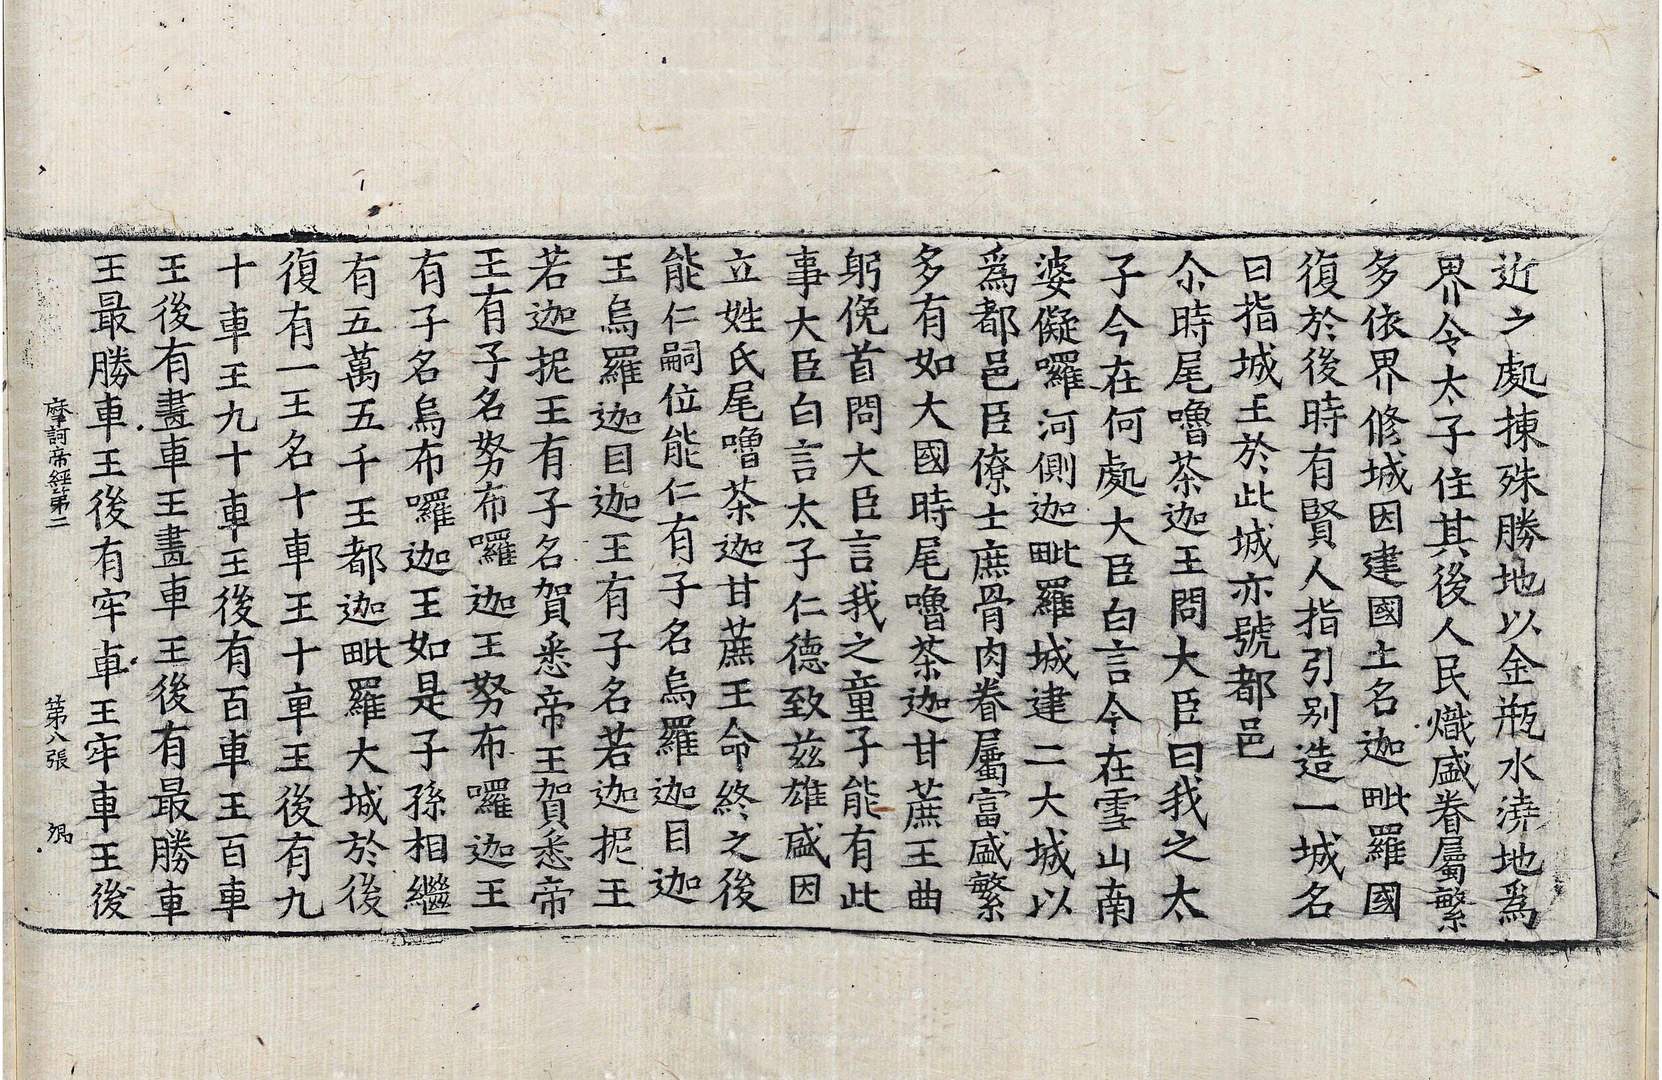 近之處揀殊勝地以金瓶水澆地爲
界令太子住其後人民熾盛眷屬繁
多依界修城因建國土名迦毗羅國
復於後時有賢人指引別造一城名
曰指城王於此城亦號都邑
尒時尾嚕茶迦王問大臣曰我之太
子今在何處大臣白言今在雪山南
婆儗囉河側迦毗羅城建二大城以
爲都邑臣僚士庶骨肉眷屬富盛繁
多有如大國時尾嚕茶迦甘蔗王曲
躬俛首問大臣言我之童子能有此
事大臣白言太子仁德致茲雄盛因
立姓氏尾嚕茶迦甘蔗王命終之後
能仁嗣位能仁有子名烏羅迦目迦
王烏羅迦目迦王有子名若迦抳王
若迦抳王有子名賀悉帝王賀悉帝
王有子名努布囉迦王努布囉迦王
有子名烏布囉迦王如是子孫相繼
有五萬五千王都迦毗羅大城於後
復有一王名十車王十車王後有九
十車王九十車王後有百車王百車
王後有畫車王畫車王後有最勝車
王最勝車王後有牢車王牢車王後
摩訶帝經第二 第八張